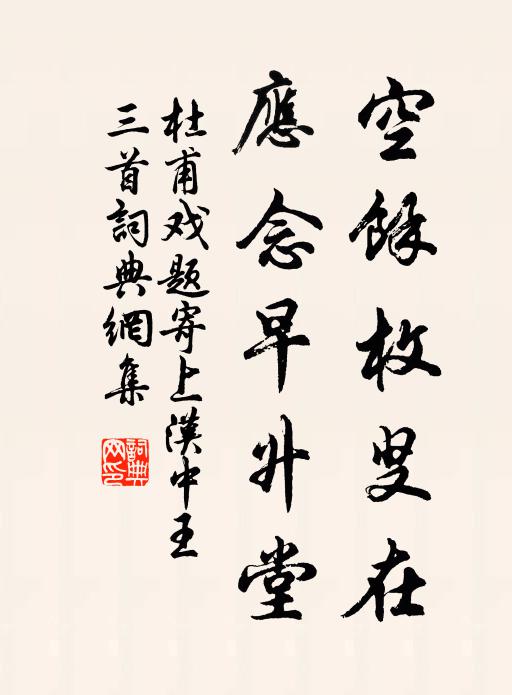 空餘枚叟在
應念早升堂
杜甫戏题寄上漢中王
三首詞典網集
詞典
网印